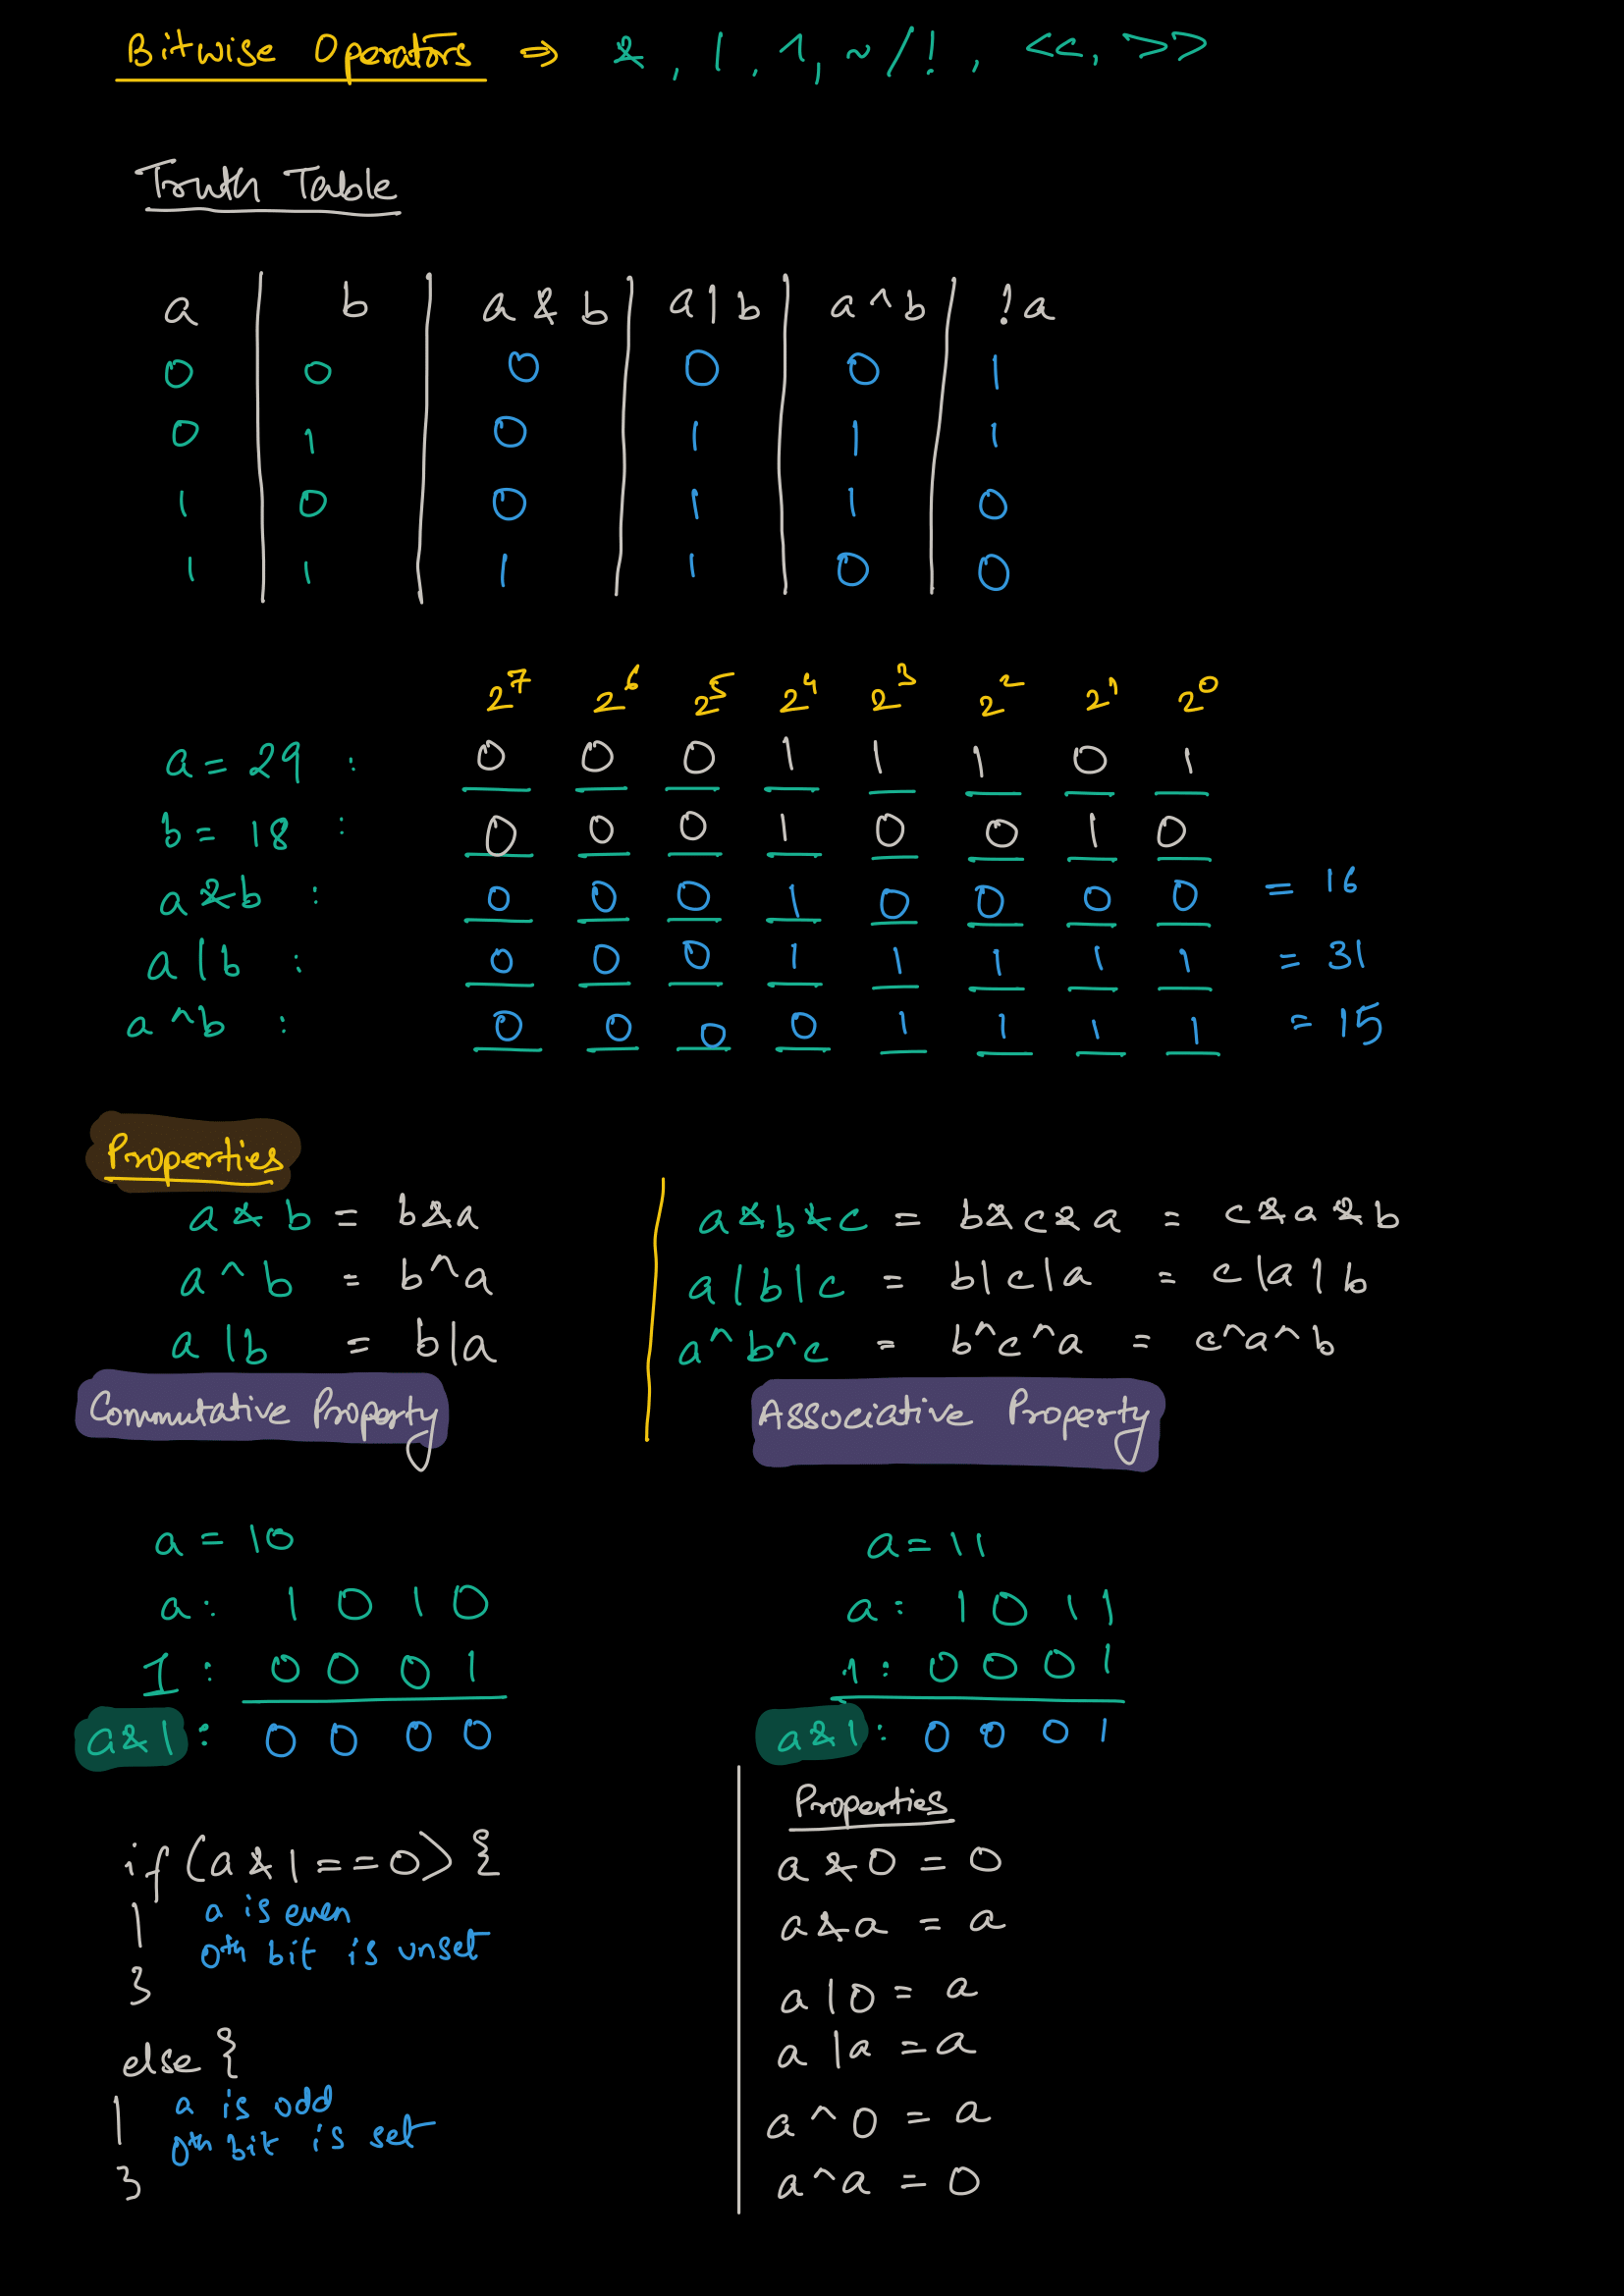 Bitwise Operators ⇒ &, |, ^, ~/!, <<, >>
Truth Table
a | b | a & b | a|b | a^b | !a
0 0 0 0 0 1
0 1 0 1 1 1
1 0 0 1 1 0
1 1 1 1 0 0
2^7 2^6 2^5 2^4 2^3 2^2 2^1 2^0
a = 29 : 0 0 0 1 1 1 0 1
b = 18 : 0 0 0 1 0 0 1 0
a & b : 0 0 0 1 0 0 0 0 = 16
a | b : 0 0 0 1 1 1 1 1 = 31
a ^ b : 0 0 0 0 1 1 1 1 = 15
Properties
a & b = b & a
a ^ b = b ^ a
a | b = b | a
Commutative Property
a & b & c = b & c & a = c & a & b
a | b | c = b | c | a = c | a | b
a ^ b ^ c = b ^ c ^ a = c ^ a ^ b
Associative Property
a = 10
a : 1 0 1 0
1 : 0 0 0 1
a & 1 : 0 0 0 0
a = 11
a : 1 0 1 1
1 : 0 0 0 1
a & 1 : 0 0 0 1
if (a & 1 == 0) {
a is even
0th bit is unset
}
else {
a is odd
0th bit is set
}
Properties
a & 0 = 0
a & a = a
a | 0 = a
a | a = a
a ^ 0 = a
a ^ a = 0